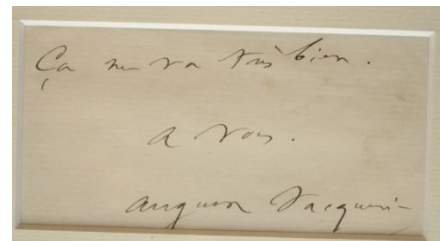 Ça me va très bien.
à vous.
Auguste Vacquerie